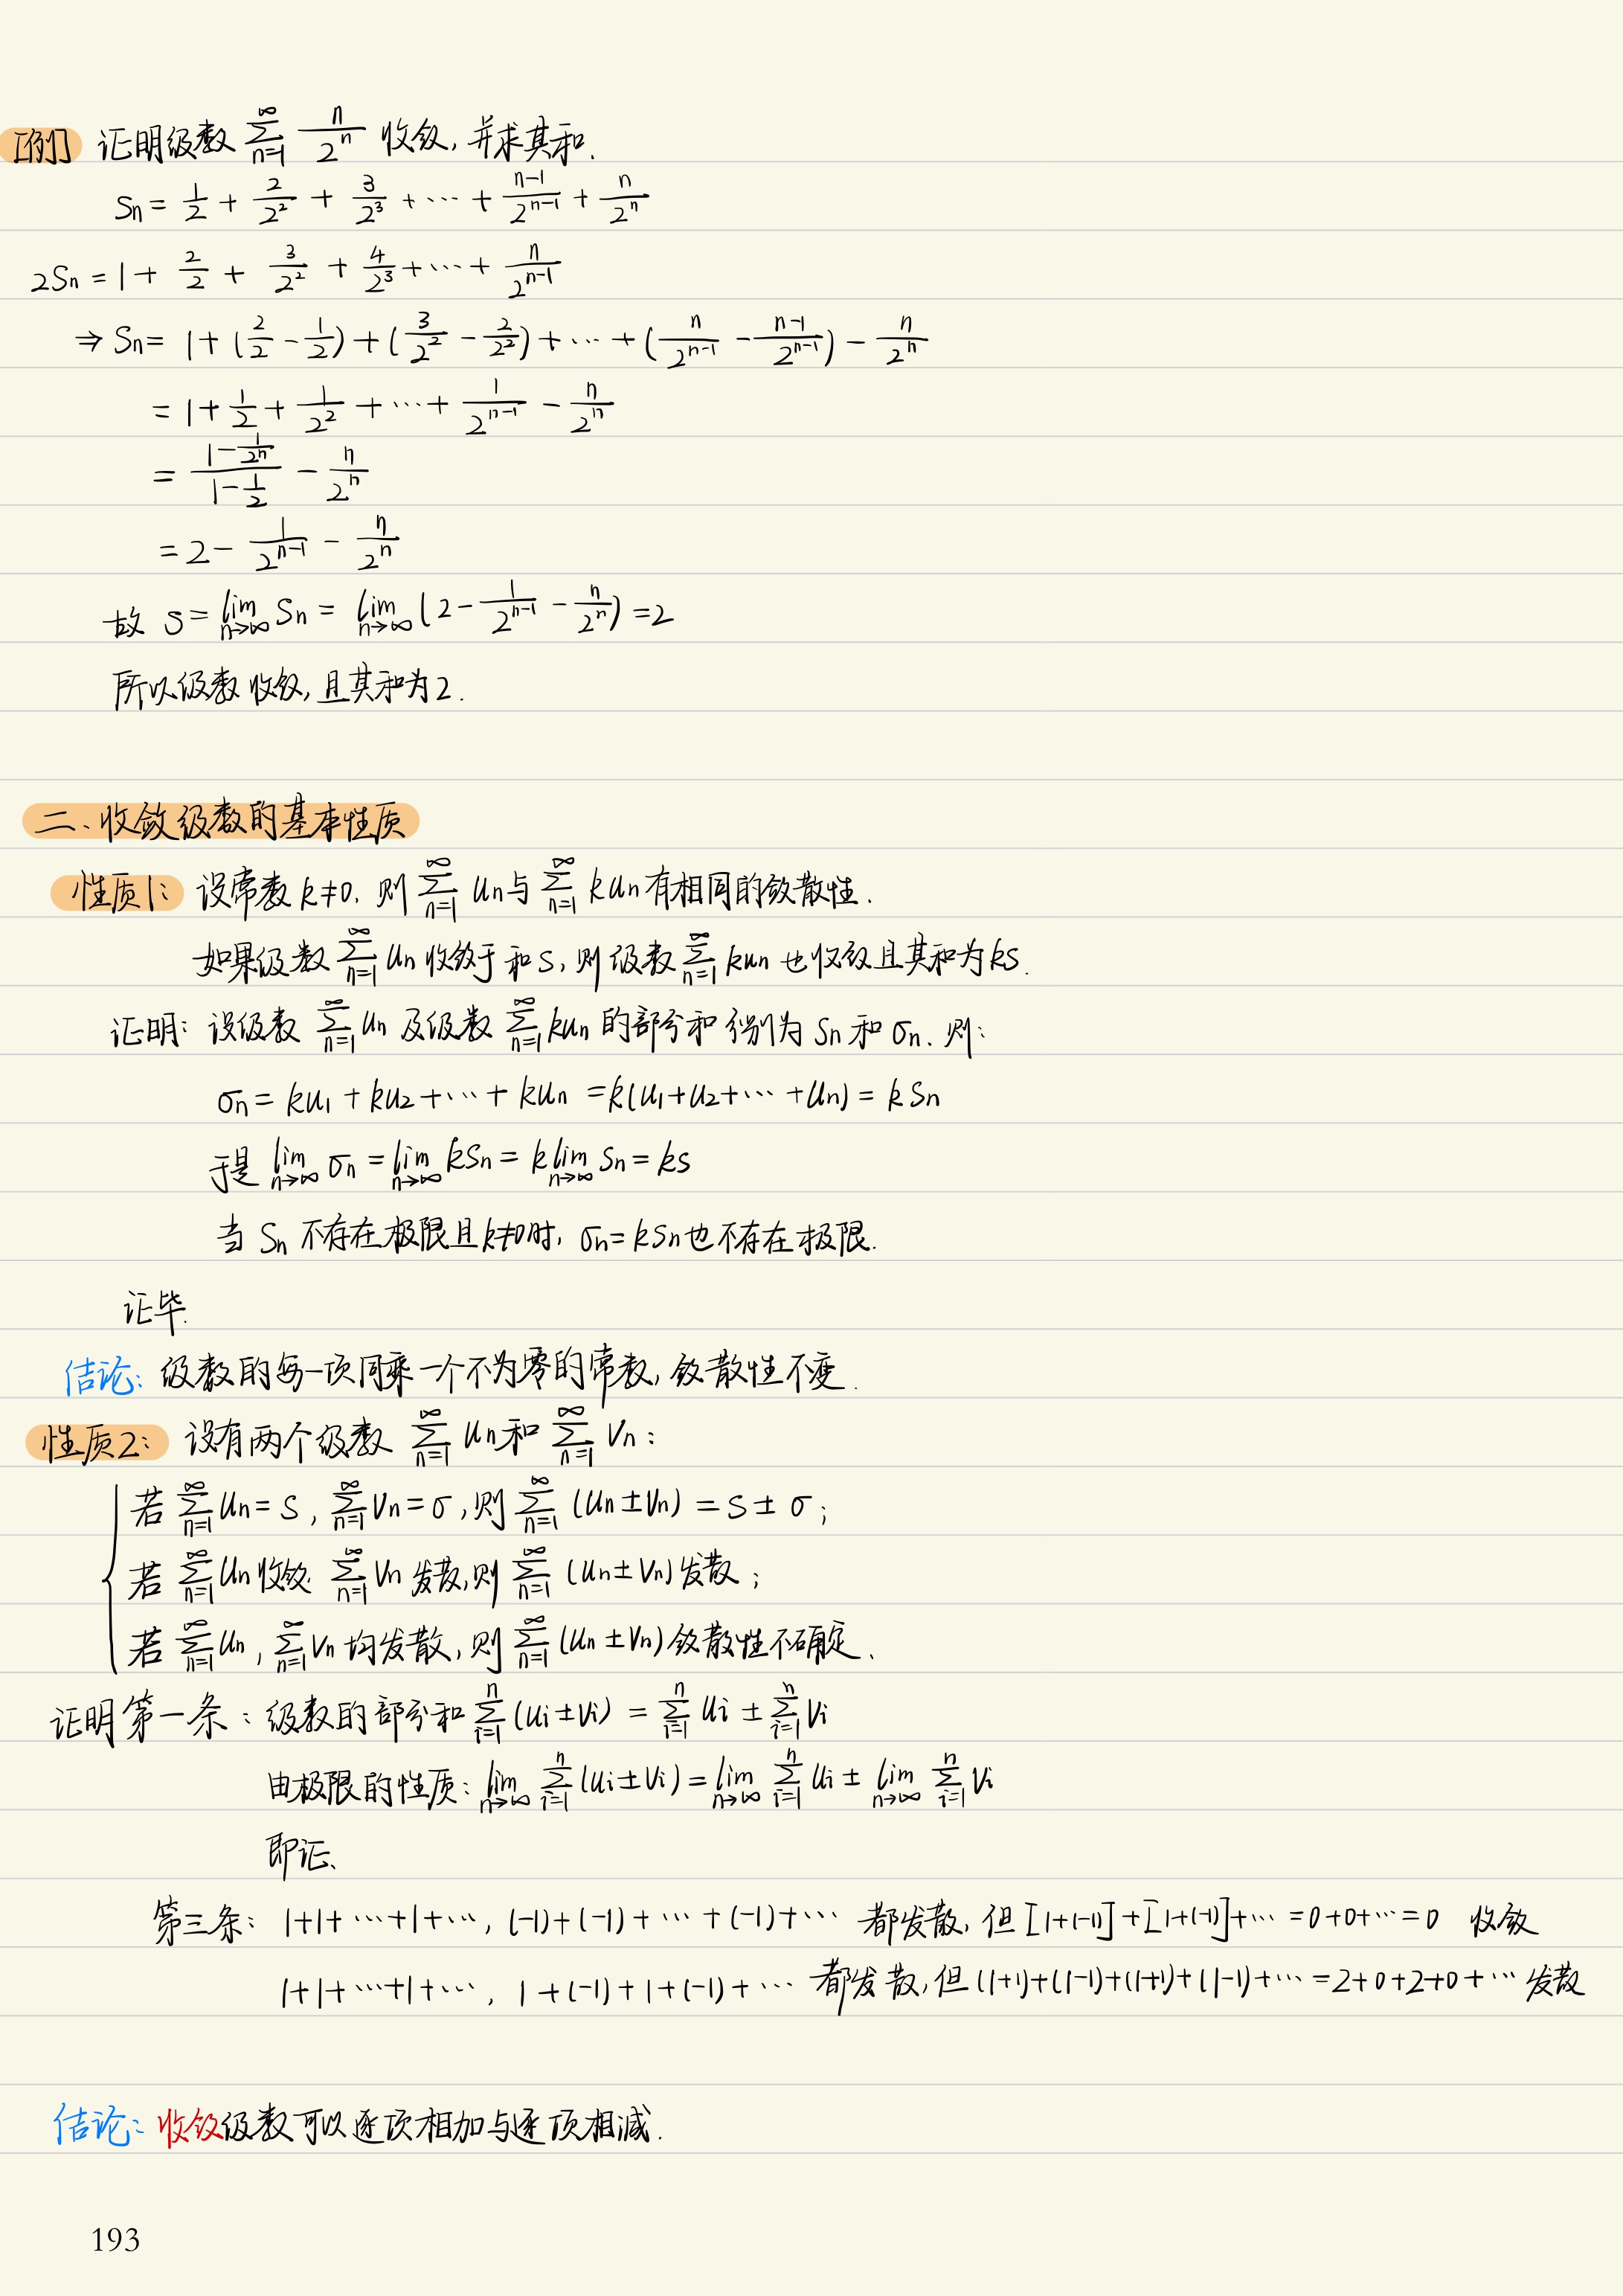 [例] 证明级数 $\sum_{n=1}^{\infty} \frac{n}{2^n}$ 收敛,并求其和.
$S_n = \frac{1}{2} + \frac{2}{2^2} + \frac{3}{2^3} + \cdots + \frac{n-1}{2^{n-1}} + \frac{n}{2^n}$
$2S_n = 1 + \frac{2}{2} + \frac{3}{2^2} + \frac{4}{2^3} + \cdots + \frac{n}{2^{n-1}}$
$\Rightarrow S_n = 1 + (\frac{2}{2} - \frac{1}{2}) + (\frac{3}{2^2} - \frac{2}{2^2}) + \cdots + (\frac{n}{2^{n-1}} - \frac{n-1}{2^{n-1}}) - \frac{n}{2^n}$
$= 1 + \frac{1}{2} + \frac{1}{2^2} + \cdots + \frac{1}{2^{n-1}} - \frac{n}{2^n}$
$= \frac{1-\frac{1}{2^n}}{1-\frac{1}{2}} - \frac{n}{2^n}$
$= 2 - \frac{1}{2^{n-1}} - \frac{n}{2^n}$
故 $S = \lim_{n\to\infty} S_n = \lim_{n\to\infty} (2 - \frac{1}{2^{n-1}} - \frac{n}{2^n}) = 2$
所以级数收敛,且其和为2.
二、收敛级数的基本性质
性质1: 设常数 $k \neq 0$, 则 $\sum_{n=1}^{\infty} u_n$ 与 $\sum_{n=1}^{\infty} ku_n$ 有相同的敛散性.
如果级数 $\sum_{n=1}^{\infty} u_n$ 收敛于和 s, 则级数 $\sum_{n=1}^{\infty} ku_n$ 也收敛且其和为ks.
证明: 设级数 $\sum_{n=1}^{\infty} u_n$ 及级数 $\sum_{n=1}^{\infty} ku_n$ 的部分和分别为 $S_n$ 和 $\sigma_n$. 则:
$\sigma_n = ku_1 + ku_2 + \cdots + ku_n = k(u_1 + u_2 + \cdots + u_n) = kS_n$
于是 $\lim_{n\to\infty} \sigma_n = \lim_{n\to\infty} kS_n = k\lim_{n\to\infty} S_n = ks$
当 $S_n$ 不存在极限且 $k \neq 0$ 时, $\sigma_n = kS_n$ 也不存在极限.
证毕.
结论: 级数的每一项同乘一个不为零的常数, 敛散性不变.
性质2: 设有两个级数 $\sum_{n=1}^{\infty} u_n$ 和 $\sum_{n=1}^{\infty} v_n$:
若 $\sum_{n=1}^{\infty} u_n = s$, $\sum_{n=1}^{\infty} v_n = \sigma$, 则 $\sum_{n=1}^{\infty} (u_n \pm v_n) = s \pm \sigma$;
若 $\sum_{n=1}^{\infty} u_n$ 收敛 $\sum_{n=1}^{\infty} v_n$ 发散, 则 $\sum_{n=1}^{\infty} (u_n \pm v_n)$ 发散;
若 $\sum_{n=1}^{\infty} u_n$, $\sum_{n=1}^{\infty} v_n$ 均发散, 则 $\sum_{n=1}^{\infty} (u_n \pm v_n)$ 敛散性不确定.
证明第一条: 级数的部分和 $\sum_{i=1}^{n} (u_i \pm v_i) = \sum_{i=1}^{n} u_i \pm \sum_{i=1}^{n} v_i$
由极限的性质: $\lim_{n\to\infty} \sum_{i=1}^{n} (u_i \pm v_i) = \lim_{n\to\infty} \sum_{i=1}^{n} u_i \pm \lim_{n\to\infty} \sum_{i=1}^{n} v_i$
即证.
第三条: $1+1+\cdots+1+\cdots$, $(-1)+(-1)+\cdots+(-1)+\cdots$ 都发散, 但 $[1+(-1)]+[1+(-1)]+\cdots = 0+0+\cdots = 0$ 收敛
$1+1+\cdots+1+\cdots$, $1+(-1)+1+(-1)+\cdots$ 都发散, 但 $(1+1)+(1-1)+(1+1)+(1-1)+\cdots = 2+0+2+0+\cdots$ 发散
结论: 收敛级数可以逐项相加与逐项相减.
193